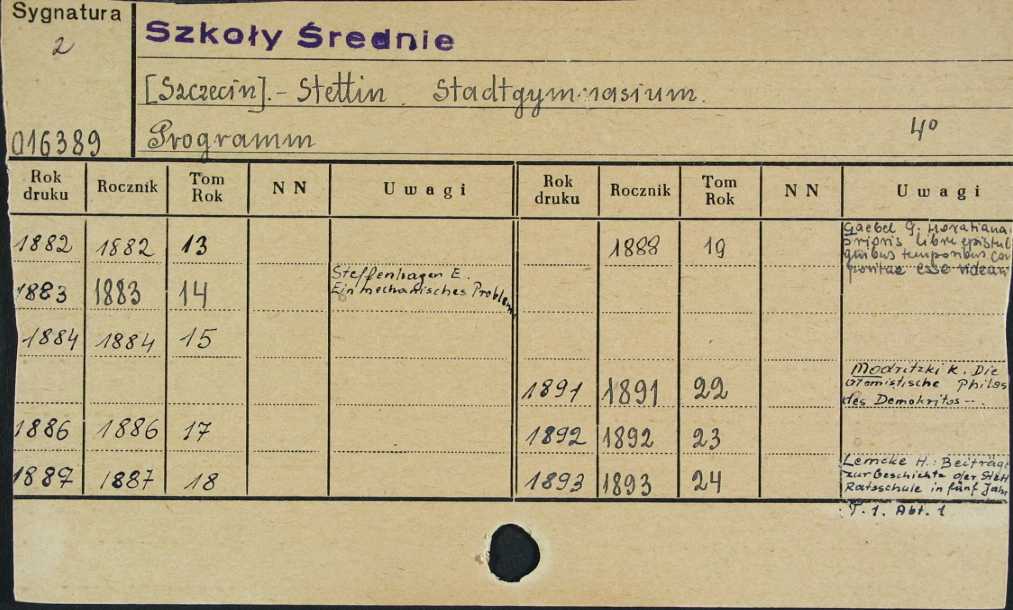 Sygnatura
2
016389
Szkoły Średnie
[Szczecin].- Stettin. Stadtgymnasium.
Programm 4°
Rok druku Rocznik Tom Rok NN Uwagi Rok druku Rocznik Tom Rok NN Uwagi
1882 1882 13
1888 19 Gaebel G. Horatiana:
prioris libri epistul
quibus temporibus com
positae esse videan
1883 1883 14 Steffenhagen E.
Ein mechanisches Problem
1884 1884 15
1891 1891 22 Modritzki K. Die
atomistische Philos
des Demokritos -.
1886 1886 17
1892 1892 23
1887 1887 18
1893 1893 24 Lemcke H.: Beiträge
zur Geschichte der Stett
Ratsschule in fünf Jahr
T. 1. Abt. 1